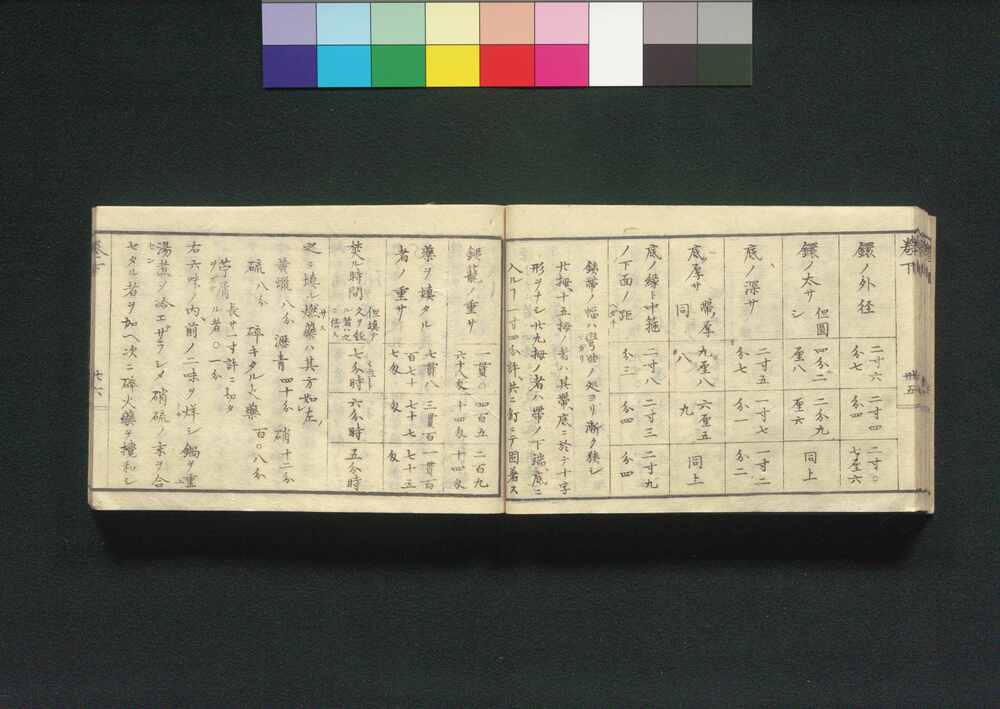 巻下
鐶ノ外径 二寸六分七 二寸四分四 二寸〇七至六
鐶ノ太サ 但圓シ 四分二至八 二分九至六 同上
底ノ深サ 二寸五分七 一寸七分一 一寸二分二
底ノ厚サ 帶ノ厚同 九至八八 六至五九 同上
底ノ縁ト中箍ノ下面ノ距 二寸八分三 二寸三分四 二寸九分四
鉄帶ノ幅ハ彎曲ノ処ヨリ漸ク狭シ
廿拇十五拇ノ者ハ其帶底ニ於テ十字
形ヲナシ廿九拇ノ者ハ帶ノ下端底ニ
入ルヿ一寸四分許共ニ釘ニテ固着ス
銕籠ノ重サ 一貫〇六十八匁 四百五十四匁 二百九十四匁
藥ヲ填タル者ノ重サ 七貫八百七十七匁 三貫百七十七匁 一貫百七十五匁
焚ル時間 七分時 六分時 五分時
之ニ填ル燃藥ハ其方如左
黄蠟 八分 瀝青 四十分 硝 十二分
硫 八分 碎キタル火藥 百〇八分
苧屑 長サ一寸許ニ切タル者 〇一分
右六味ノ内前ノ二味ヲ烊シ鍋ヲ重
湯煮ヲ冷エザラシメ硝硫ノ末ヲ合
セタル者ヲ加ヘ次ニ碎火藥ヲ攪和シ
七六